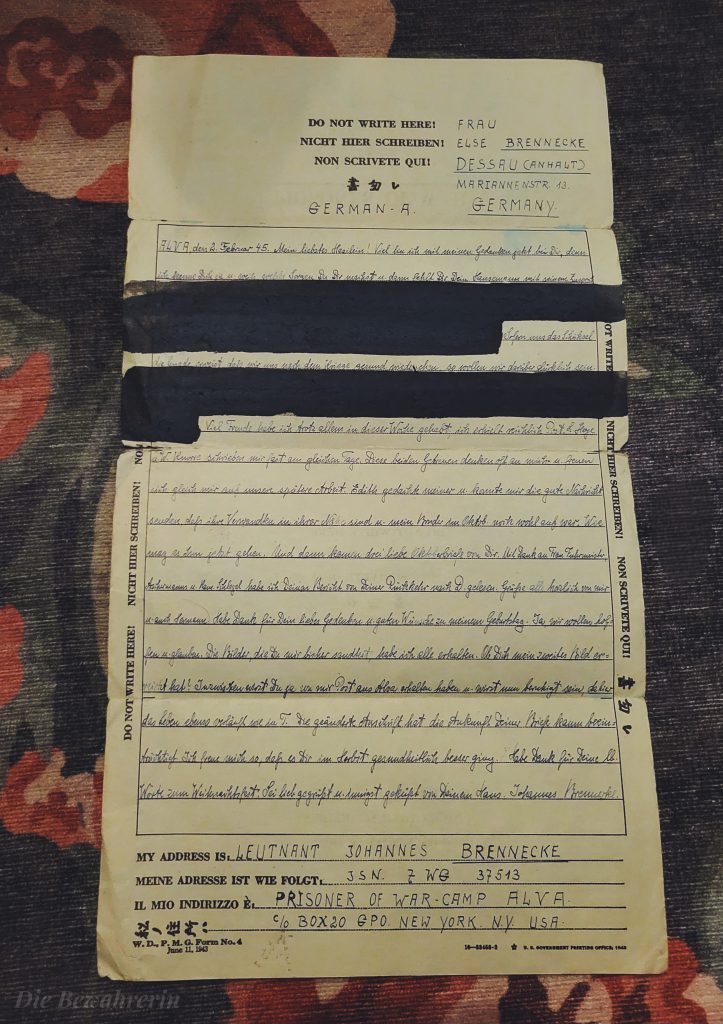 DO NOT WRITE HERE! FRAU
NICHT HIER SCHREIBEN! ELSE BRENNECKE
NON SCRIVETE QUI! DESSAU (ANHALT)
書勿レ MARIANNENSTR. 13.
GERMAN-A. GERMANY.
ALVA, den 2. Februar 45. Mein liebstes Haslein! Viel bin ich mit meinen Gedanken jetzt bei Dir, denn
ich kenne Dich ja u. weiß, welche Sorgen Du Dir machst u. dann fehlt Dir Dein Hansemann mit seinem
Sofern uns das Schicksal
die Gnade erweist, daß wir uns nach dem Kriege gesund wiedersehen, so wollen wir darüber glücklich sein
Viel Freude habe ich trotz allem in dieser Woche gehabt, ich erhielt reichlich Post.
u. W. Knorre schrieben mir fast am gleichen Tage. Diese beiden Getreuen denken oft an mich u. freuen
sich gleich mir auf unsere spätere Arbeit. Edith gedachte meiner u. konnte mir die gute Nachricht
senden, daß ihre Verwandten in ihrer Nähe sind u. mein Bruder im Oktob. noch wohl auf war. Wie
mag es ihm jetzt gehen. Und dann kamen drei liebe Oktoberbriefe von Dir. Mit Dank an Frau
u. Schlegel habe ich Deinen Bericht von Deiner Rückkehr nach D. gelesen. Grüße alle herzlich von mir
Habe Dank für Dein liebes Gedenken u. guten Wünsche zu meinem Geburtstag. Ja, wir wollen hof-
fen u. glauben. Die Bilder, die Du mir bisher sandtest, habe ich alle erhalten. Ob Dich mein zweites Bild er-
reicht hat? Inzwischen wirst Du ja von mir Post aus Alva erhalten haben u. wirst nun beruhigt sein, daß hier
das Leben ebenso verläuft wie in T. Die geänderte Anschrift hat die Ankunft Deiner Briefe kaum beein-
trächtigt. Ich freue mich so, daß es Dir im Herbst gesundheitlich besser ging. Habe Dank für Deine lb.
Worte zum Weihnachtsfest. Sei lieb gegrüßt u. innigst geküßt von Deinem Hans. Johannes Brennecke.
DO NOT WRITE HERE! NICHT HIER SCHREIBEN! NON
NOT WRITE NICHT HIER SCHREIBEN! NON SCRIVETE QUI! 書勿レ
MY ADDRESS IS: LEUTNANT JOHANNES BRENNECKE
MEINE ADRESSE IST WIE FOLGT: JSN. 7 WG 37513
IL MIO INDIRIZZO È: PRISONER OF WAR-CAMP ALVA.
私ノ住所: C/O BOX 20 GPO. NEW YORK. N.Y. USA.
W. D., P. M. G. Form No. 4
June 11, 1943
☆ U. S. GOVERNMENT PRINTING OFFICE, 1943
Die Bewahrerin